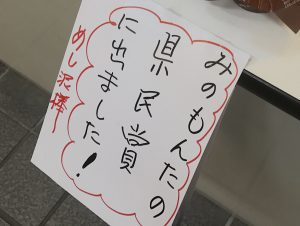 みのもんたの
県民賞
に出ました!
めし沢棒